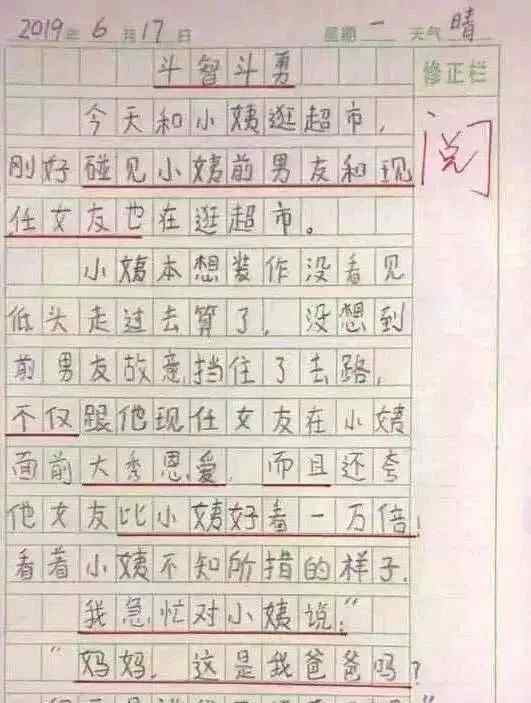 2019年6月17日 星期一 天气晴
斗智斗勇 修正栏
今天和小姨逛超市,
阅
刚好碰见小姨前男友和现
任女友也在逛超市。
小姨本想装作没看见
低头走过去算了,没想到
前男友故意挡住了去路,
不仅跟他现任女友在小姨
面前大秀恩爱,而且还夸
他女友比小姨好看一万倍,
看着小姨不知所措的样子,
我急忙对小姨说:“
“妈妈,这是我爸爸吗?